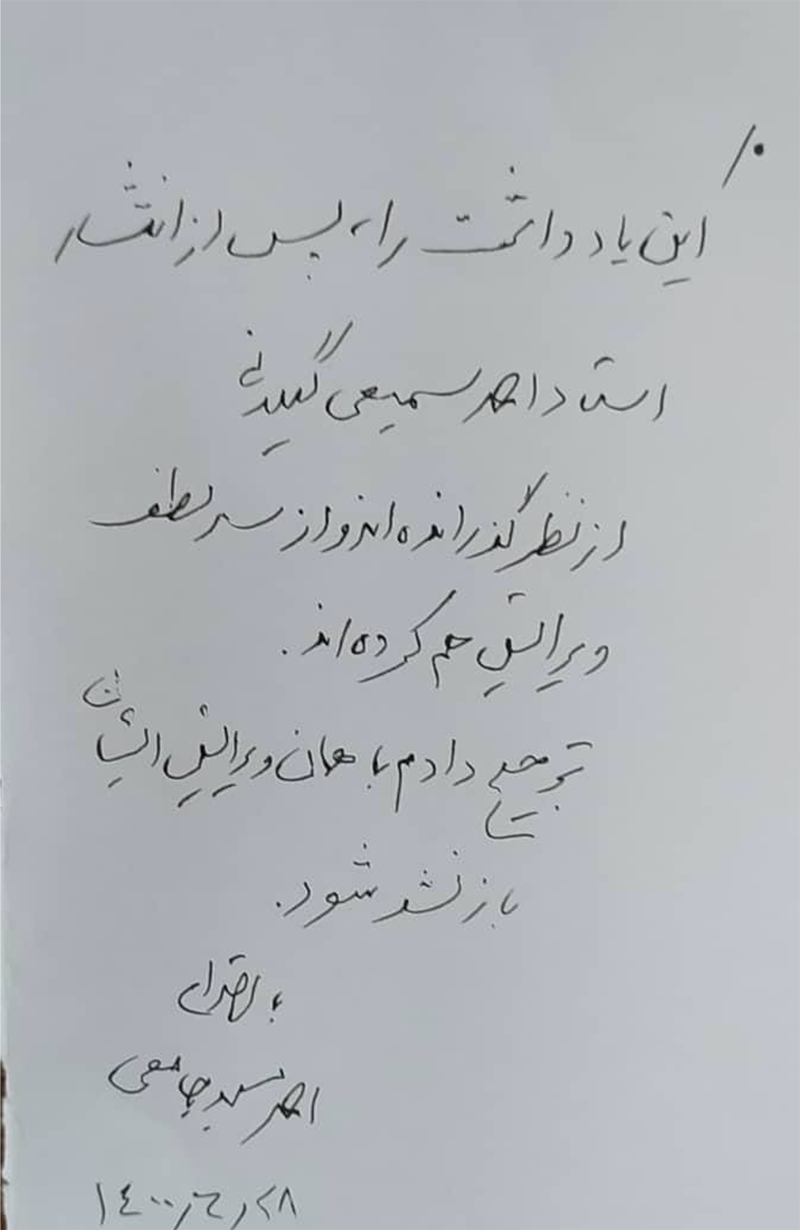 این یادداشت را، پس از انتشار
استاد احمد سمیعی گیلانی
از نظر گذرانده‌اند و از سر لطف
ویرایش هم کرده‌اند.
ترجیح دادم با همان ویرایش ایشان
بازنشر شود.
با احترام
احمد مسجدجامعی